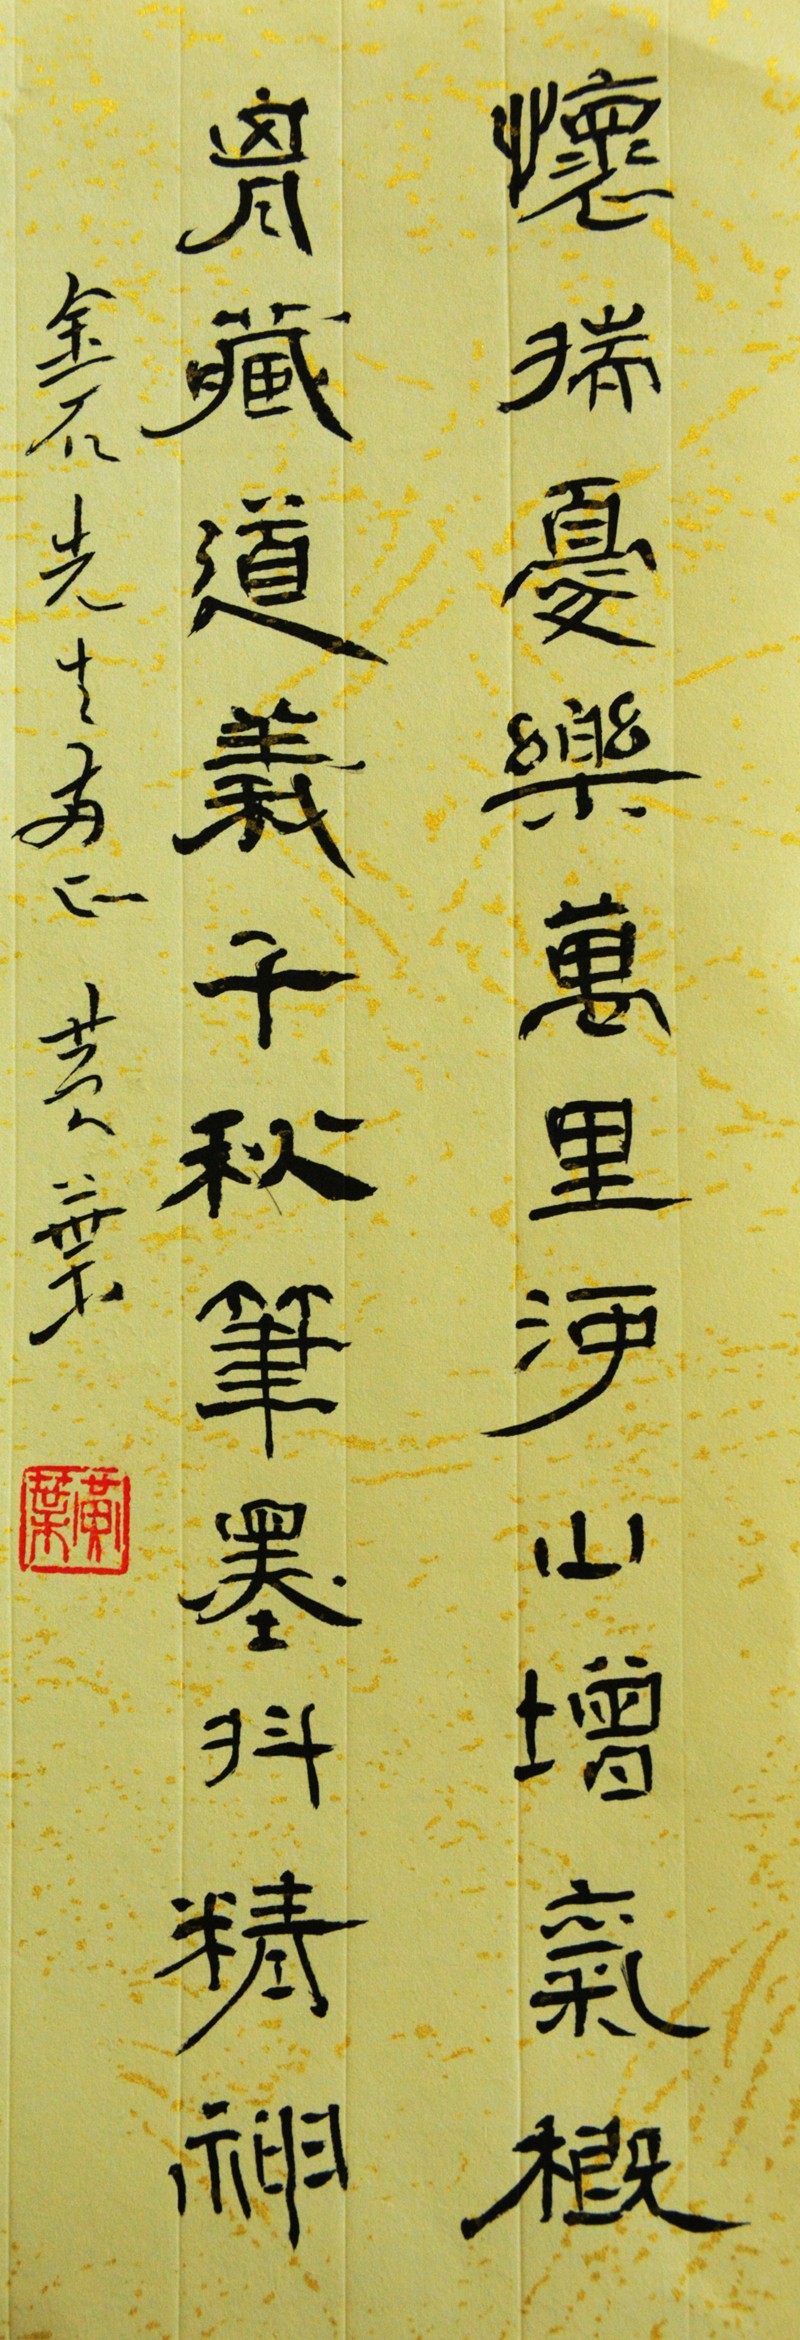 懷揣憂樂萬里河山增氣概
胷藏道義千秋筆墨抖精神
金石先生兩正 黄葉
黄葉